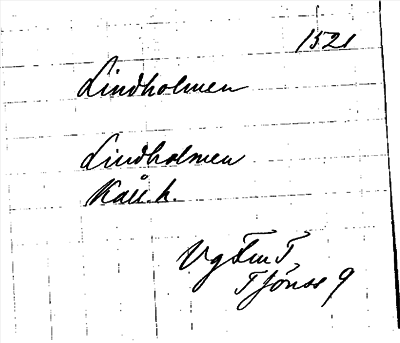 1521
Lindholmen
Lindholmen
Kåll. h.
Vg Fm T
Tjörss 9